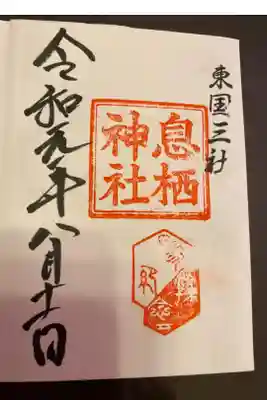 東国三社
息栖
神社
令和元年八月十一日